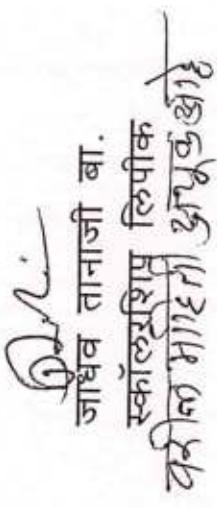 जाधव तानाजी बा.
स्कॉलरशिप लिपीक
वरील माहिती अचूक आहे